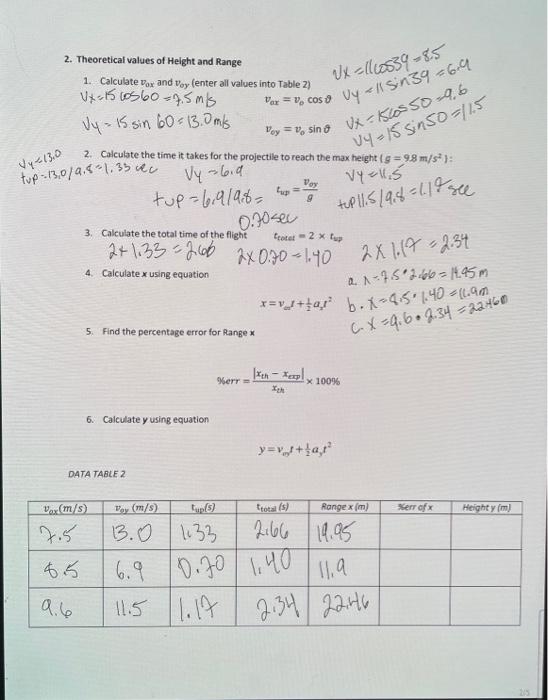 2. Theoretical values of Height and Range
Vx=11cos39=8.5
1. Calculate vox and voy (enter all values into Table 2)
Vy=11sin39=6.9
Vx=15cos60=7.5m/s
vox = vo cos θ
Vx=15cos50=9.6
Vy=15sin60=13.0m/s
voy = vo sin θ
Vy=15sin50=11.5
Vy=13.0
2. Calculate the time it takes for the projectile to reach the max height (g = 9.8 m/s²):
tup=13.0/9.8=1.33 sec
Vy=6.9
Vy=11.5
tup=6.9/9.8=
tup = voy/g
tup 11.5/9.8=1.17 sec
0.70sec
3. Calculate the total time of the flight
ttotal = 2 × tup
2×1.33=2.66
2×0.70=1.40
2×1.17=2.34
4. Calculate x using equation
a. x=7.5•2.66=19.95m
x = voxt + ½axt²
b. x=8.5•1.40=11.9m
c. x=9.6•2.34=22.46m
5. Find the percentage error for Range x
%err = |xth − xexp|/xth × 100%
6. Calculate y using equation
y = voyt + ½ayt²
DATA TABLE 2
vox(m/s) voy (m/s) tup(s) ttotal (s) Range x (m) %err of x Height y (m)
7.5 13.0 1.33 2.66 19.95
8.5 6.9 0.70 1.40 11.9
9.6 11.5 1.17 2.34 22.46
2/5